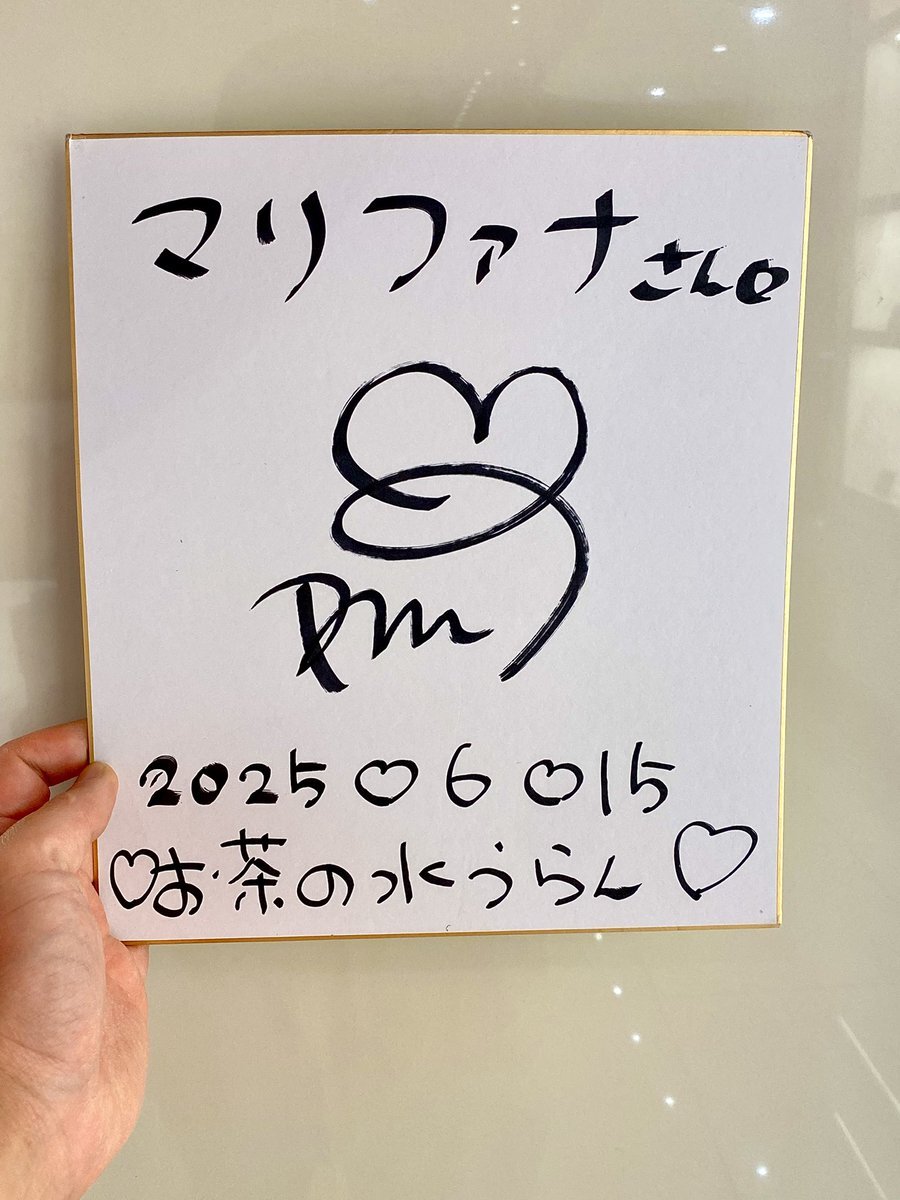 マリファナさん
2025♡6♡15
♡お茶の水うらん♡